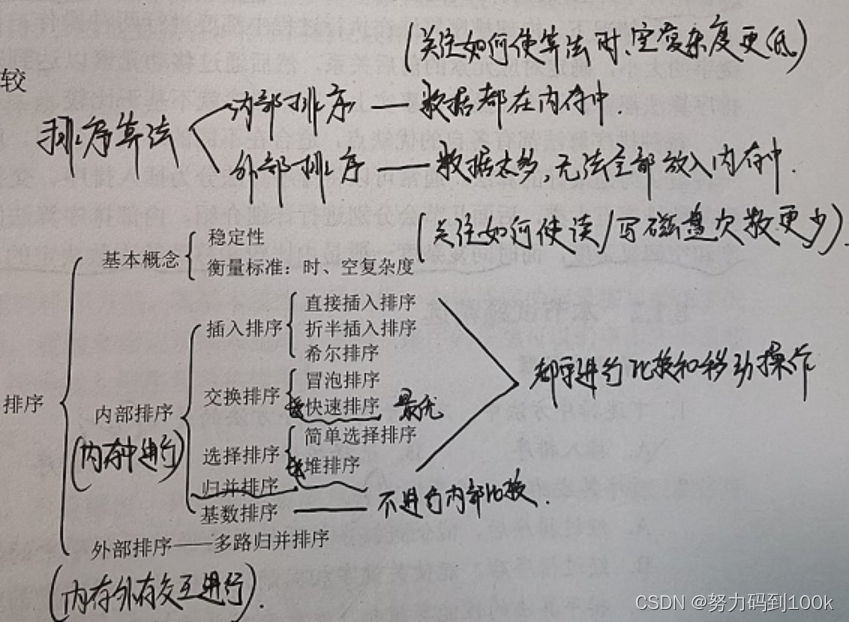 (关注如何使算法时、空复杂度更低)
较
排序算法
内部排序 — 数据都在内存中.
外部排序 — 数据太多,无法全部放入内存中.
(关注如何使读/写磁盘次数更少)
排序
基本概念
稳定性
衡量标准:时、空复杂度
内部排序
(内存中进行)
插入排序
直接插入排序
折半插入排序
希尔排序
交换排序
冒泡排序
快速排序 最优
选择排序
简单选择排序
堆排序
归并排序
都要进行比较和移动操作
基数排序 —— 不进行内部比较.
外部排序——多路归并排序
(内存外有交互进行).
CSDN @努力码到100k